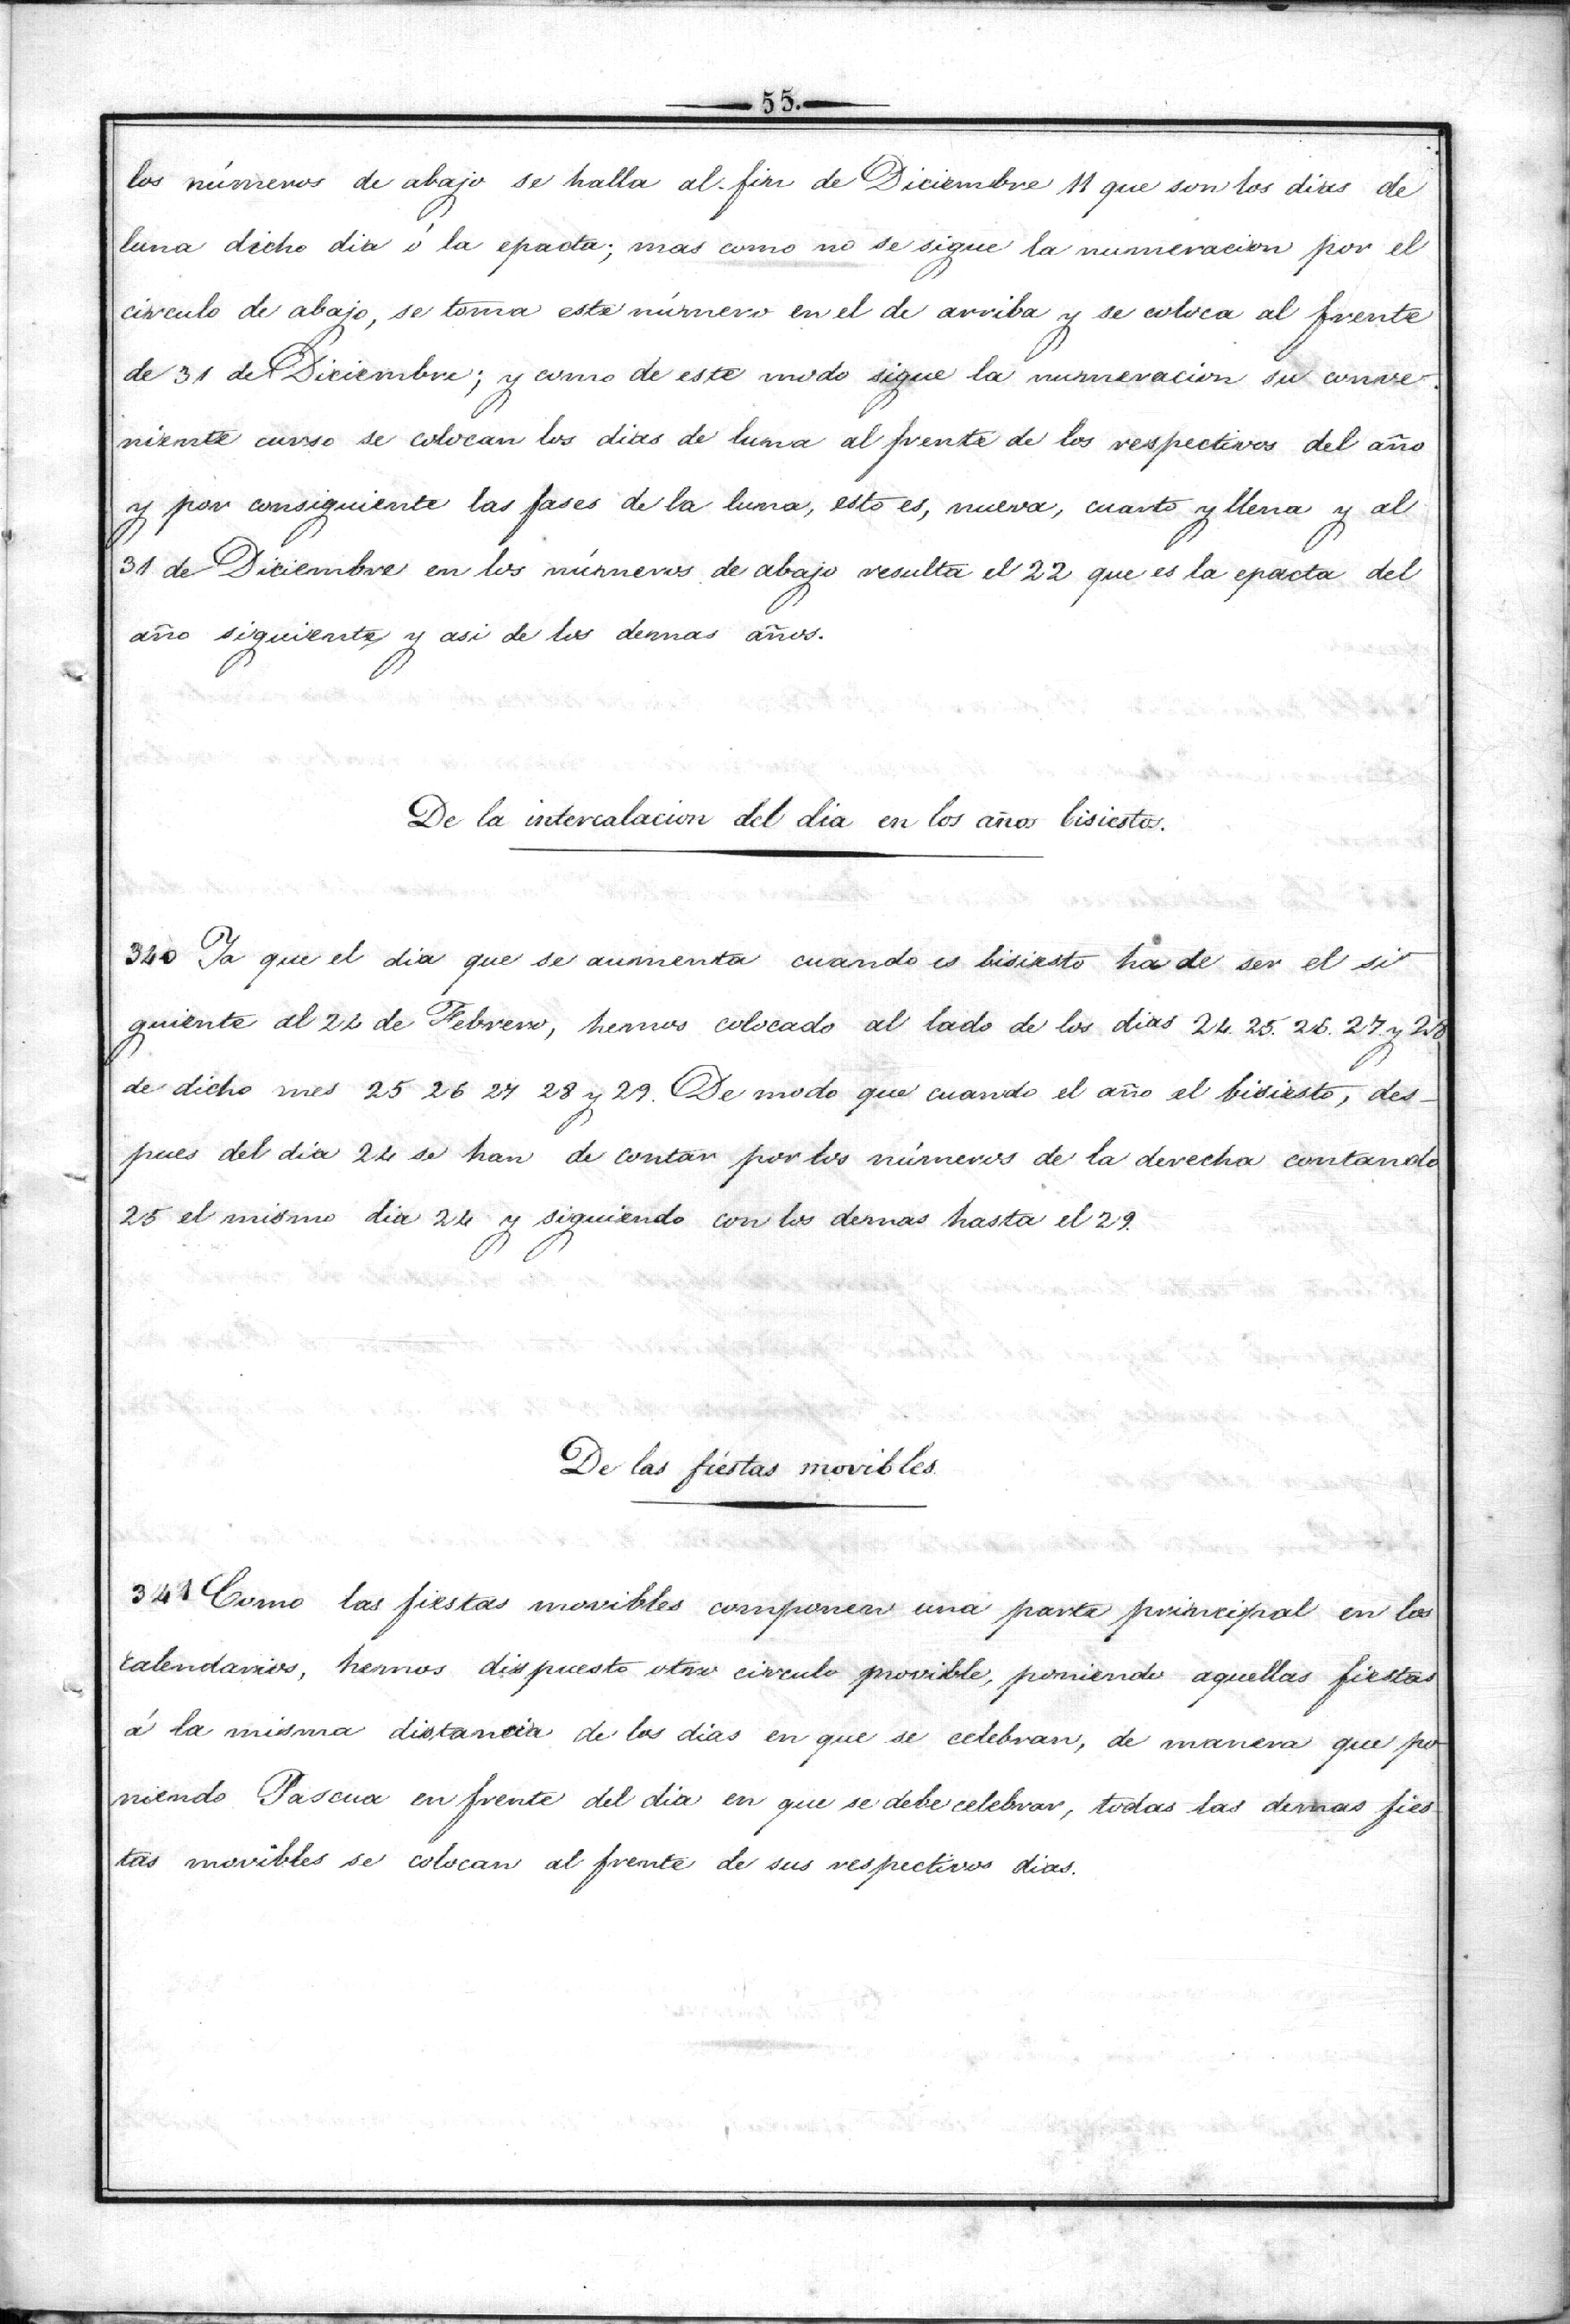 55.
los números de abajo se halla al fin de Diciembre 11 que son los dias de
luna dicho dia ó la epacta; mas como no se sigue la numeracion por el
circulo de abajo, se toma este número en el de arriba y se coloca al frente
de 31 de Diciembre; y como de este modo sigue la numeracion su conve-
niente curso se colocan los dias de luna al frente de los respectivos del año
y por consiguiente las fases de la luna, esto es, nueva, cuarto y llena y al
31 de Diciembre en los números de abajo resulta el 22 que es la epacta del
año siguiente y asi de los demas años.
De la intercalacion del dia en los años bisiestos.
340 Ya que el dia que se aumenta cuando es bisiesto ha de ser el si-
guiente al 24 de Febrero, hemos colocado al lado de los dias 24. 25. 26. 27. y 28
de dicho mes 25 26 27 28 y 29. De modo que cuando el año el bisiesto, des-
pues del dia 24 se han de contar por los números de la derecha contando
25 el mismo dia 24 y siguiendo con los demas hasta el 29.
De las fiestas movibles.
341 Como las fiestas movibles componen una parte principal en los
calendarios, hemos dispuesto otro circulo movible, poniendo aquellas fiestas
á la misma distancia de los dias en que se celebran, de manera que po-
niendo Pascua en frente del dia en que se debe celebrar, todas las demas fies-
tas movibles se colocan al frente de sus respectivos dias.